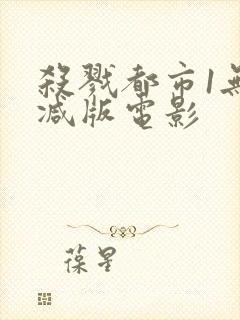 殺戮都市1無
减版電影
葆星